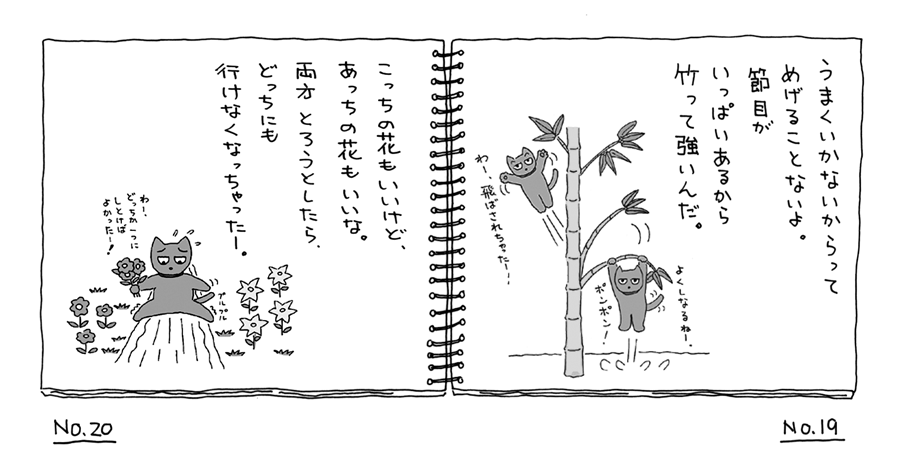 うまくいかないからって
めげることないよ。
節目が
いっぱいあるから
竹って強いんだ。
わー、飛ばされちゃったー！
よくしなるねー。
ポンポン！
No.19
こっちの花もいいけど、
あっちの花もいいな。
両方とろうとしたら、
どっちにも
行けなくなっちゃったー。
わー、
どっちか一つに
しとけば
よかったー！
プルプル
No.20